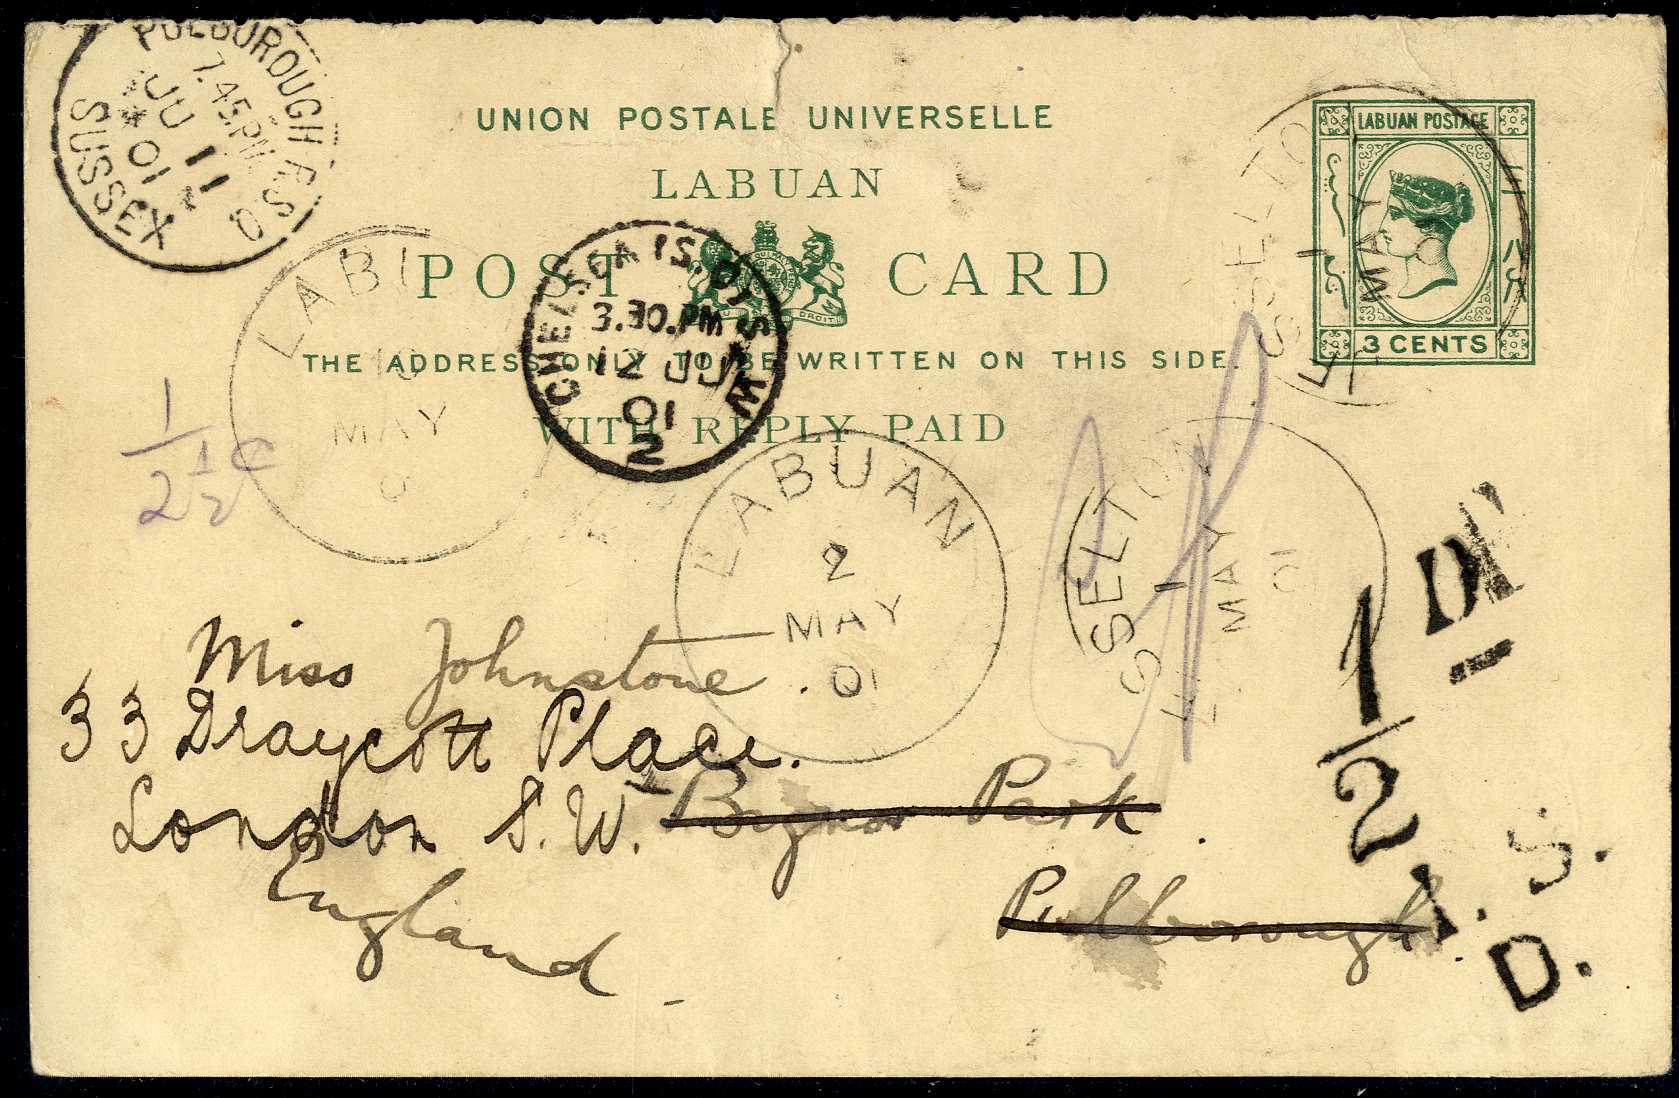 PULBOROUGH R.S.O
7.45PM
JU 11
01
SUSSEX
UNION POSTALE UNIVERSELLE
LABUAN
POST CARD
THE ADDRESS ONLY TO BE WRITTEN ON THIS SIDE.
WITH REPLY PAID
LABUAN POSTAGE
3 CENTS
CHELSEA IS. OF S.W
3.30.PM
12 JU
01
2
LABU
MAY
0
1
2 1/2 c
LABUAN
2
MAY
01
ESSELTON
1
MAY
0
ESSELTON
1
MAY
01
1D
1/2
Miss Johnstone.
33 Draycott Place.
London S.W.
England.
Park
Pulborough.
S.
D.